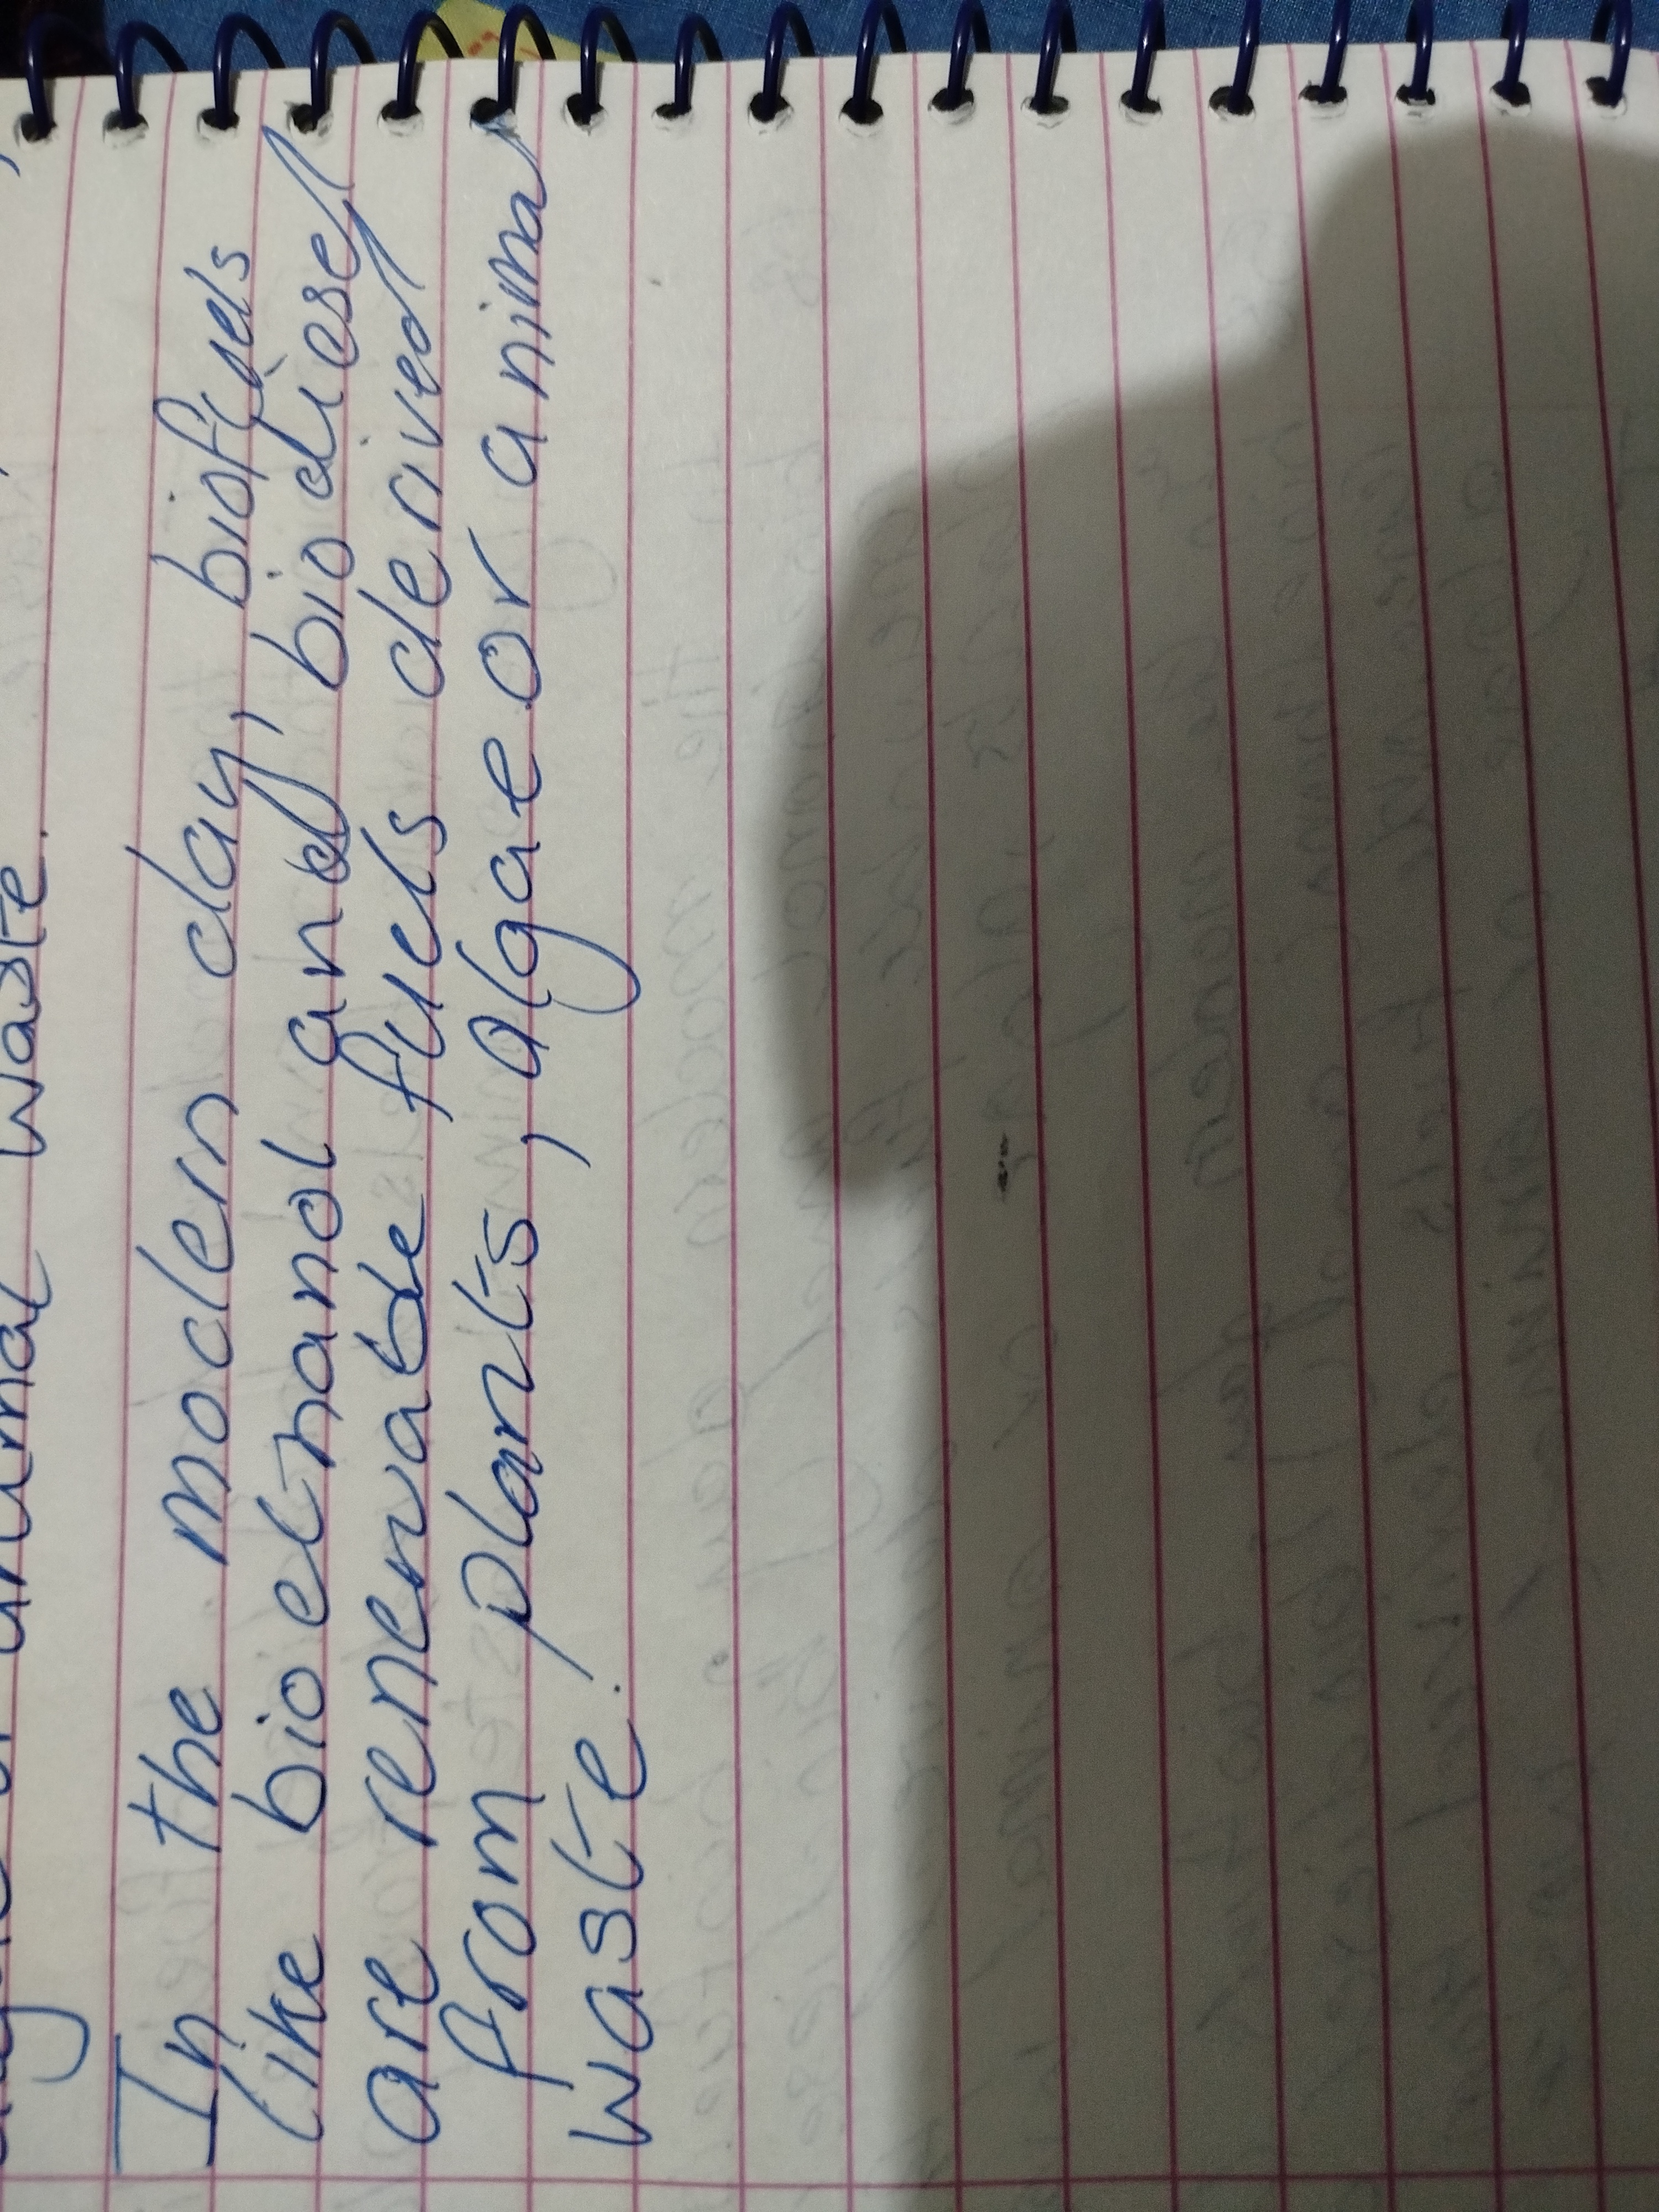 animal waste.
In the modern day, biofuels
like bioethanol and biodiesel
are renewable fuels derived
from plants, algae or animal
waste.